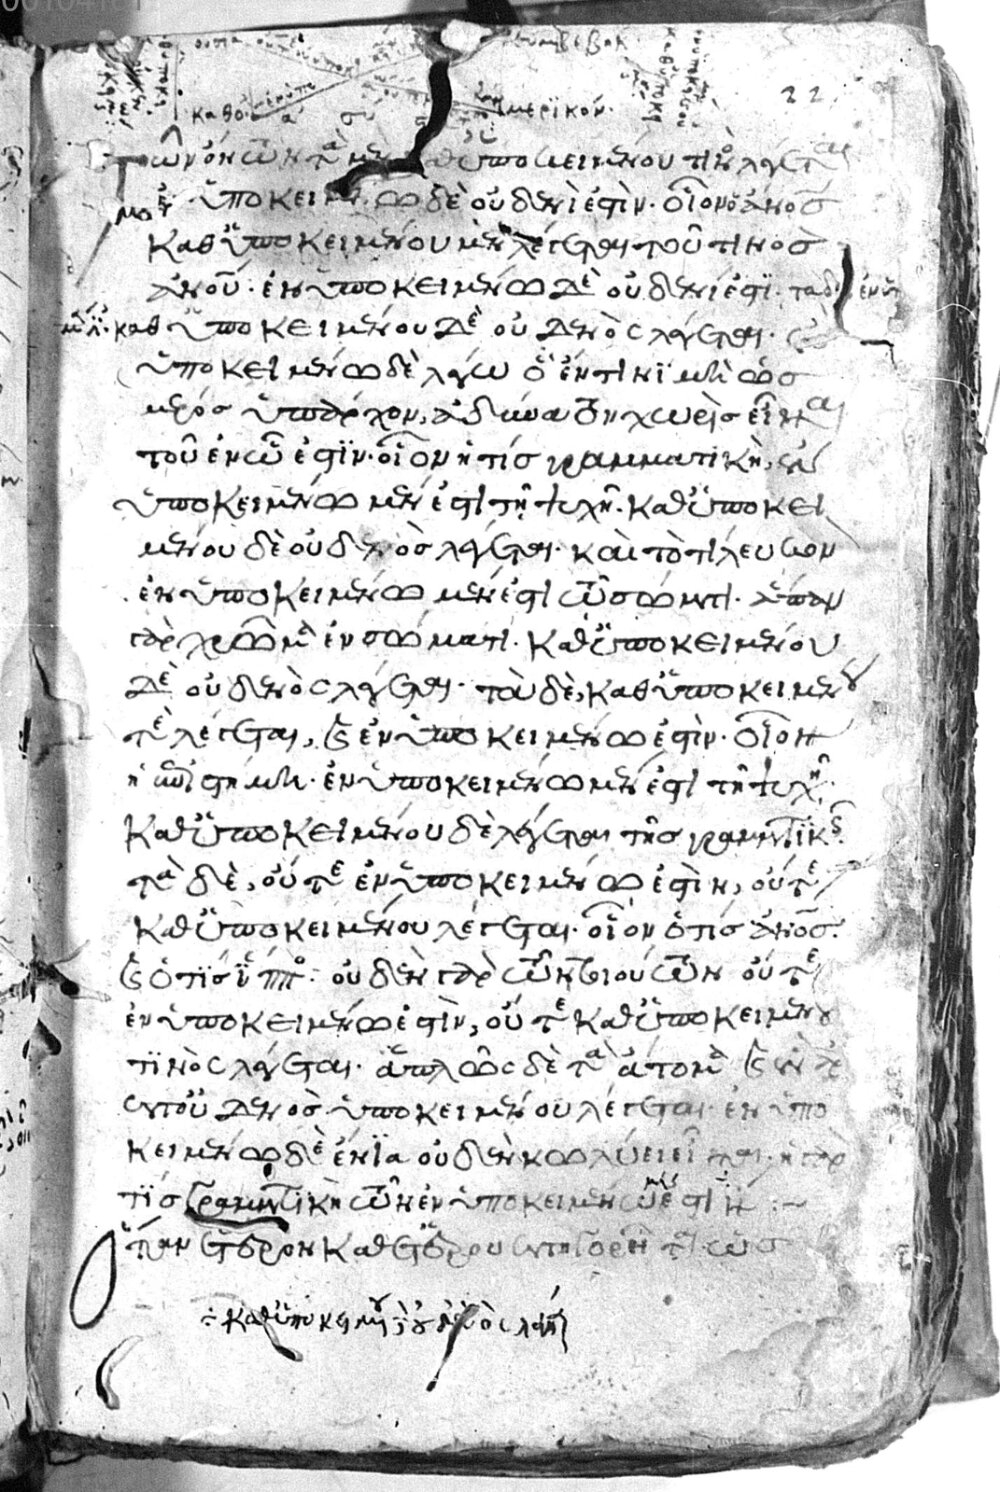 22
μερικόν
τῶν ὄντων τὰ μὲν καθ ὑποκειμένου τινὸς λέγεται
ἐν ὑποκειμένω δὲ οὐδενί ἐστιν· οἷον ὁ ἄνος
καθ ὑποκειμένου μὲν λέγεται τοῦ τινὸς
ἄνου· ἐν ὑποκειμένω δὲ οὐδενί ἐστι· τὰ δ ἐν ὑπ
μέν· καθ ὑποκειμένου δὲ οὐδενὸς λέγεται· ἐν
ὑποκειμένω δὲ λέγω ὃ ἔν τινι μὴ ὡς
μέρος ὑπάρχον, ἀδύνατον χωρὶς εἶναι
τοῦ ἐν ὧ ἐστίν· οἷον ἡ τὶς γραμματικὴ, ἐν
ὑποκειμένω μέν ἐστι τῆ ψυχῆ· καθ ὑποκει
μένου δὲ οὐδενὸς λέγεται· καὶ τὸ τὶ λευκὸν
ἐν ὑποκειμένω μέν ἐστι τῶ σώματι· ἅπαν
γὰρ χρῶμα ἐν σώματι· καθ ὑποκειμένου
δὲ οὐδενὸς λέγεται· τὰ δὲ, καθ ὑποκειμένου
τὲ λέγεται, καὶ ἐν ὑποκειμένω ἐστίν· οἷον
ἡ ἐπιστήμη· ἐν ὑποκειμένω μέν ἐστι τῆ ψυχῆ·
καθ ὑποκειμένου δὲ λέγεται τῆς γραμματικῆς·
τὰ δὲ, οὔτε ἐν ὑποκειμένω ἐστὶν, οὔτε
καθ ὑποκειμένου λέγεται· οἷον ὁ τὶς ἄνος·
καὶ ὁ τὶς ἵππος· οὐδὲν γὰρ τῶν τοιούτων οὔτε
ἐν ὑποκειμένω ἐστὶν, οὔτε καθ ὑποκειμένου
τινὸς λέγεται· ἁπλῶς δὲ τὰ ἄτομα καὶ ἓν ἀρ
κατ οὐδενὸς ὑποκειμένου λέγεται· ἐν ὑπο
κειμένω δὲ ἔνια οὐδὲν κωλύει εἶναι· ἡ γάρ
τὶς γραμματικὴ τῶν ἐν ὑποκειμένω ἐστίν :~
ὅταν ἕτερον καθ ἑτέρου κατηγορῆται ὡς
÷ καθ ὑποκειμένου δὲ οὐδενὸς λέγεται